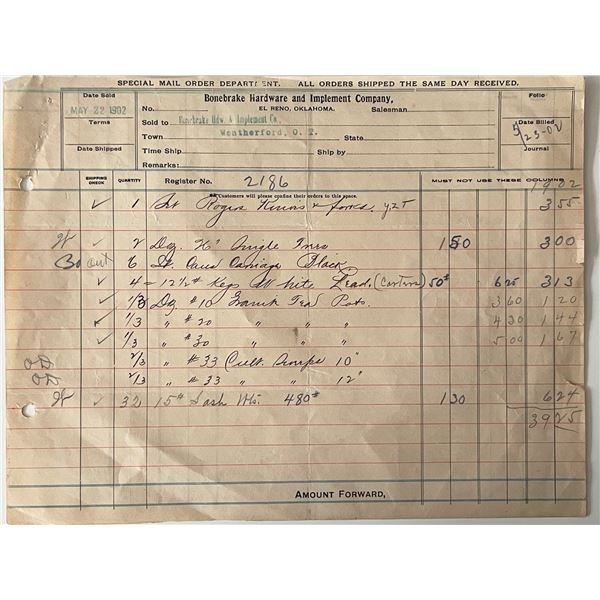 SPECIAL MAIL ORDER DEPARTMENT. ALL ORDERS SHIPPED THE SAME DAY RECEIVED.
Date Sold
MAY 22 1902
Terms
Date Shipped
Bonebrake Hardware and Implement Company,
EL RENO, OKLAHOMA.
No. Salesman
Sold to Bonebrake Hdw. & Implement Co.,
Town Weatherford, O. T. State
Time Ship Ship by
Remarks:
Folio
Date Billed
5/23-02
Journal
SHIPPING CHECK QUANTITY Register No. 2186 MUST NOT USE THESE COLUMNS
Customers will please confine their orders to this space.
1 Set Rogers Knives & forks. 3 55
2 Doz 1 50 3 00
out 6 Carriage Black
4 = 12 1/2# Kegs White Lead (Carters) 50# 6 25 3 13
1/3 Doz #10 Granite Tea Pots. 3 60 1 20
1/3 " #20 " " 4 30 1 44
1/3 " #30 " " 5 00 1 67
2/3 " #33 Cult. 10"
2/3 " #33 " " 12"
32 15# Sash Wts. 480# 1 30 6 24
39 25
AMOUNT FORWARD,